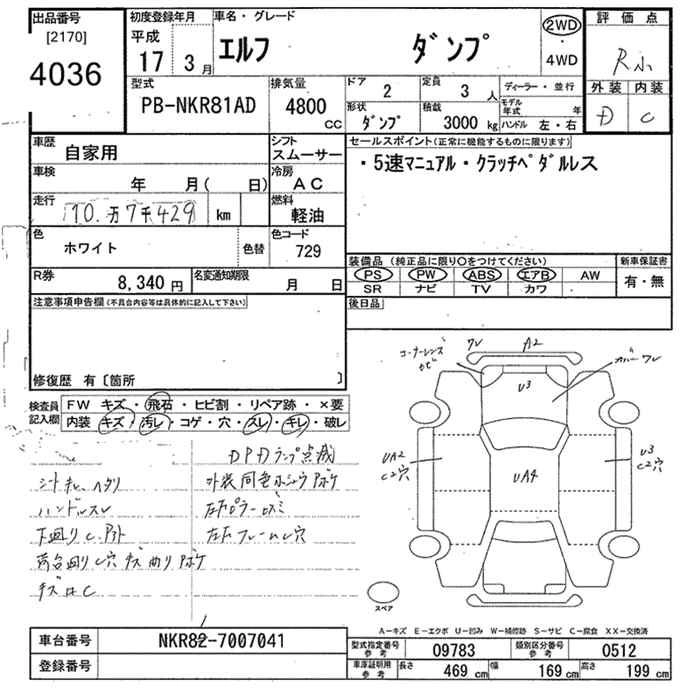 出品番号 初度登録年月 車名・グレード 評価点
[2170] 平成
4036 17 3月 エルフ ダンプ 2WD ・ 4WD R小
型式 排気量 ドア 2 定員 3人 ディーラー・並行 外装 内装
PB-NKR81AD 4800cc 形状 ダンプ 積載 3000kg モデル年式 年 D C
ハンドル 左・右
車歴 自家用 シフト スムーサー セールスポイント(正常に機能するものに限ります)
車検 年 月( 日) 冷房 AC ・5速マニュアル・クラッチペダルレス
走行 10万7千429 km 燃料 軽油
色 ホワイト 色替 色コード 729
装備品 (純正品に限り○をつけてください) 新車保証書
R券 8,340円 名変通知期限 月 日 PS PW ABS エアB AW 有・無
SR ナビ TV カワ
注意事項申告欄(不具合内容等は具体的に記入して下さい) 後日品
修復歴 有〔箇所 〕
検査員記入欄 FW キズ・飛石・ヒビ割・リペア跡・×要
内装 キズ・汚レ・コゲ・穴・スレ・キレ・破レ
コーナーレンズ ワレ A2 カバーワレ
カビ
U3
UA2 C2穴 UA4 U3 C2穴
DPDランプ点滅
シートキレ、ヘタリ
ハンドルスレ
下廻りC、アト
荷台廻りC穴キズ曲りボケ
左右フレームC穴
キズ凹C
スペア
A－キズ E－エクボ U－凹み W－補修跡 S－サビ C－腐食 XX－交換済
車台番号 NKR82-7007041 型式指定番号 参考 09783 類別区分番号 参考 0512
登録番号 車庫証明用 参考 長さ 469cm 幅 169cm 高さ 199cm